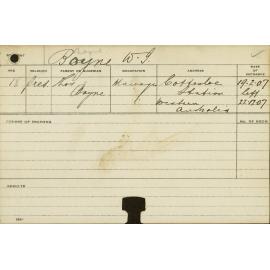 Boyne W. J.
AGE RELIGION PARENT OR GUARDIAN OCCUPATION ADDRESS DATE OF ENTRANCE
18 Pres. Thos Cottesloe 19-2-07
Boyne Station left
Western 22.12.07
Australia
COURSE OF STUDIES NO. OF DESK
RESULTS